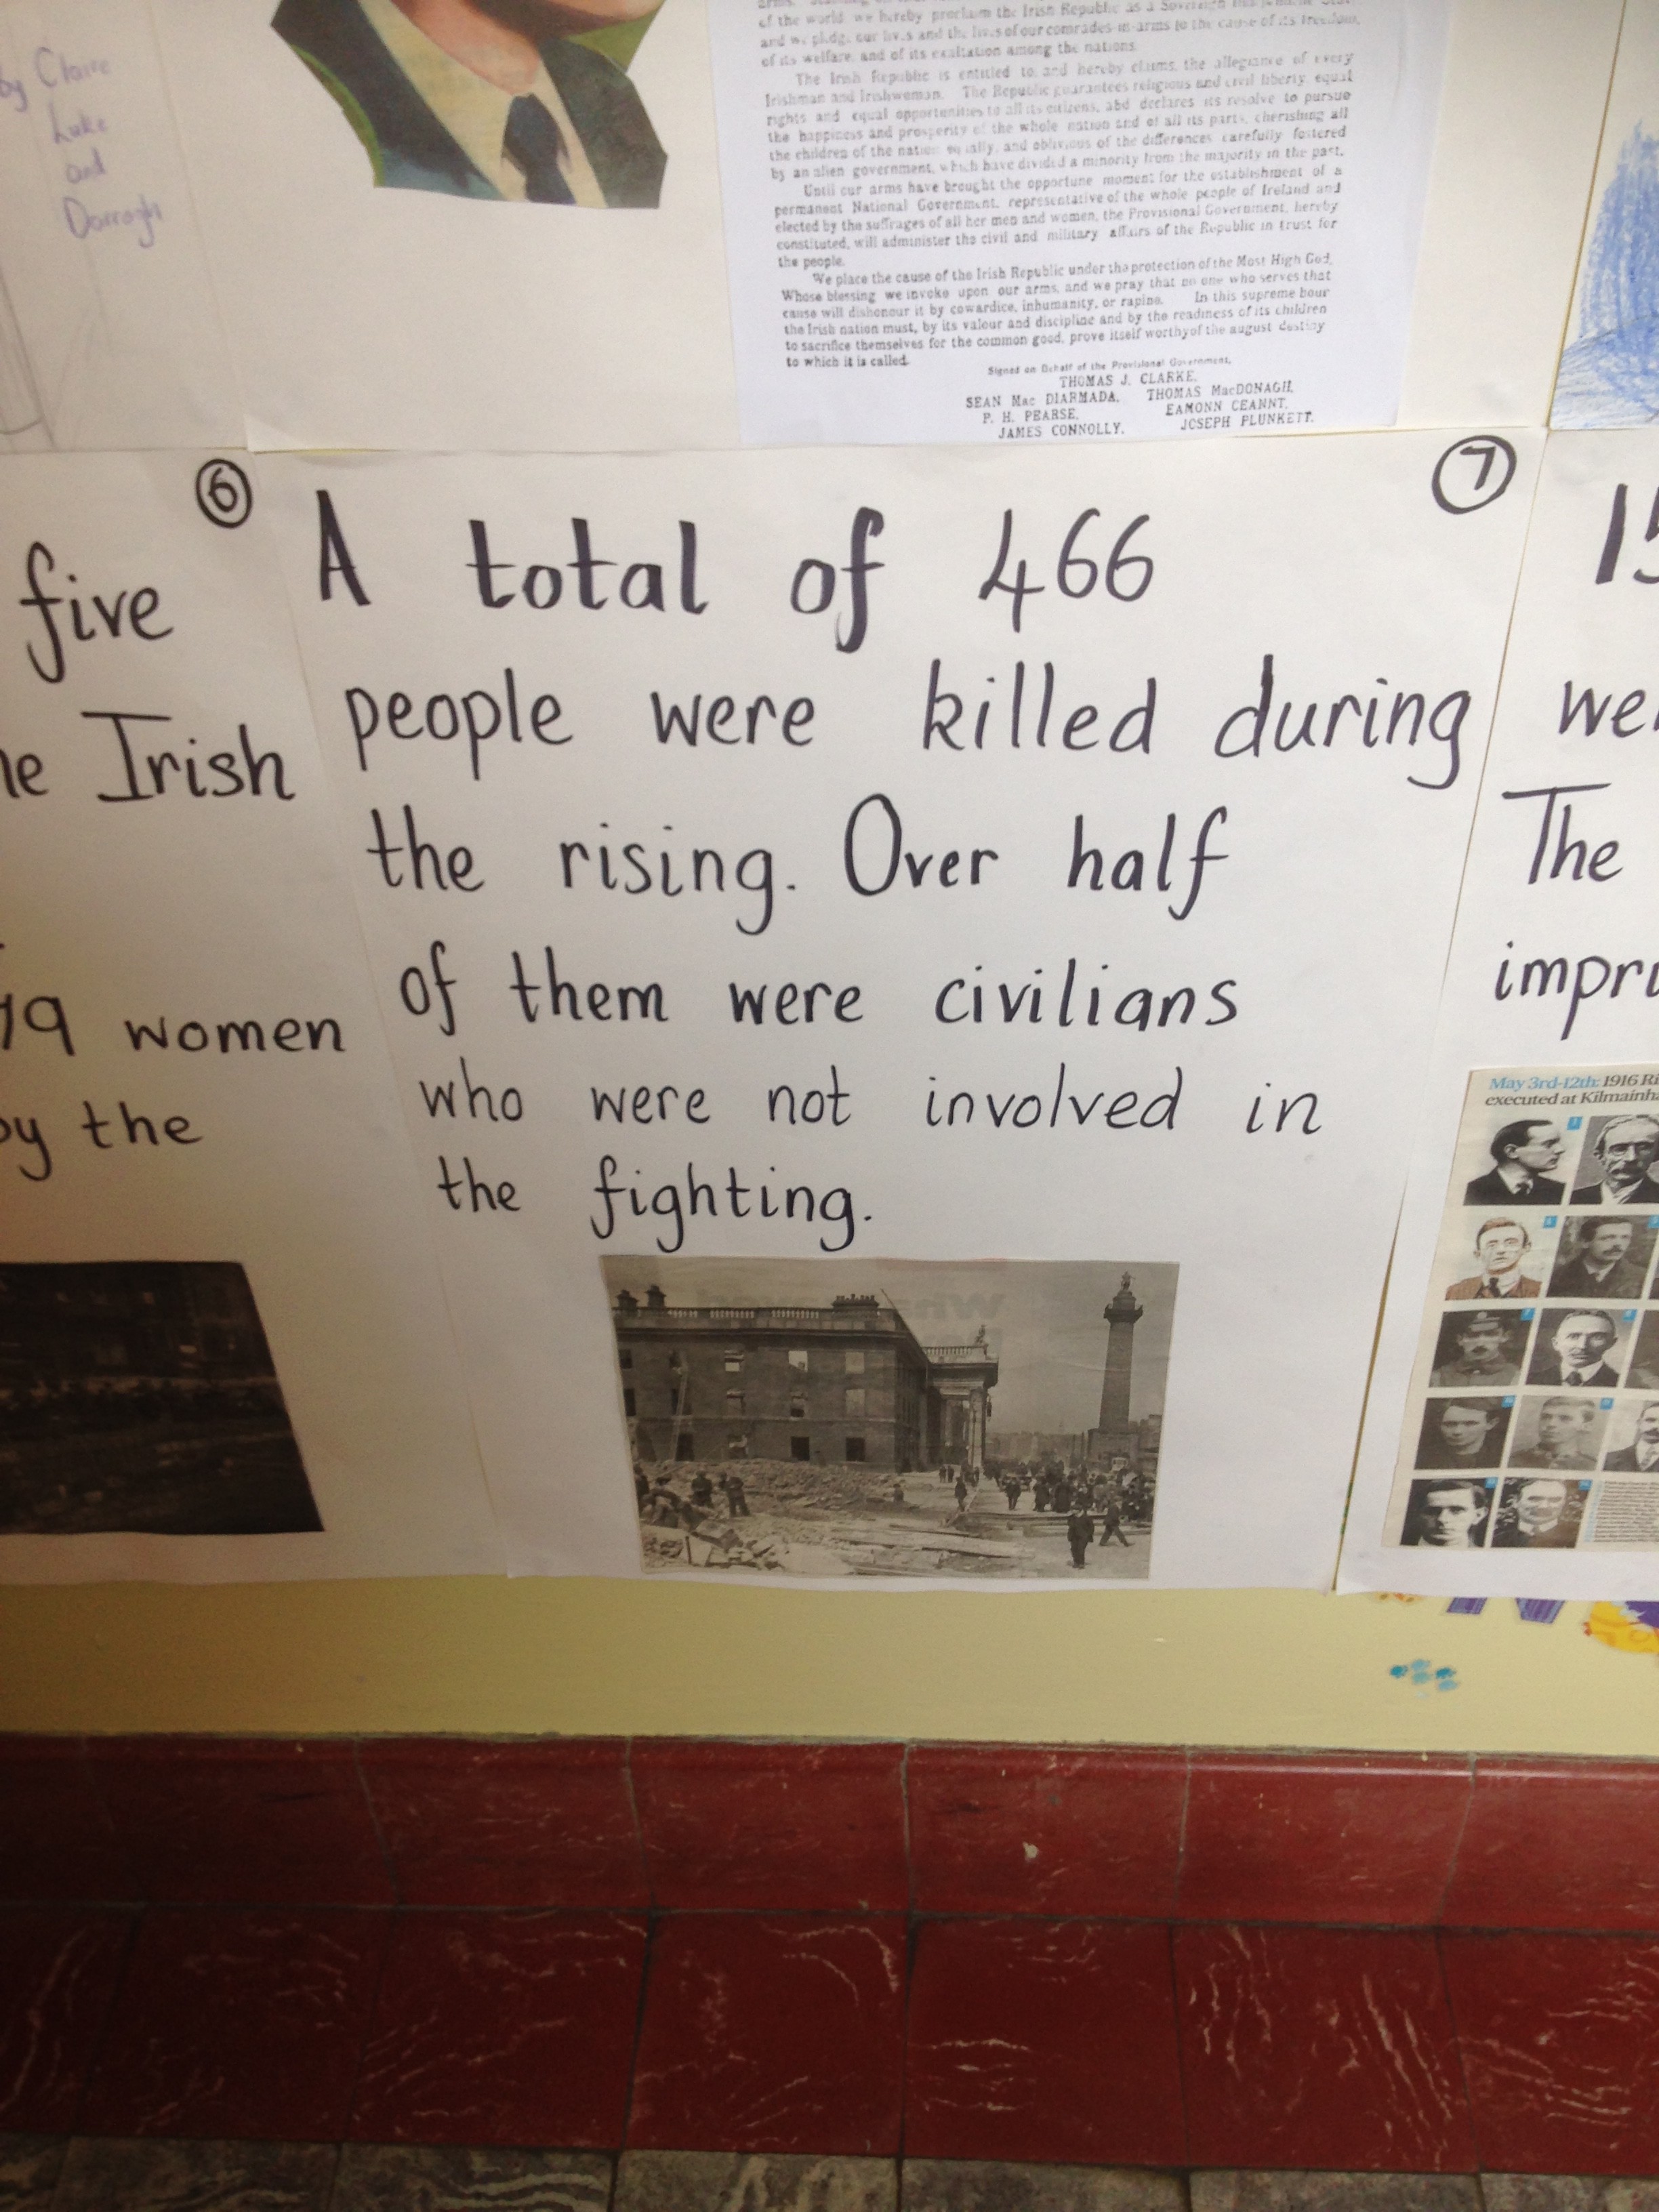 by Claire
Luke
and
Darragh
of the world we hereby proclaim the Irish Republic as a Sovereign
and we pledge our lives and the lives of our comrades-in-arms to the cause of its freedom,
of its welfare, and of its exaltation among the nations.
The Irish Republic is entitled to, and hereby claims, the allegiance of every
Irishman and Irishwoman. The Republic guarantees religious and civil liberty, equal
rights and equal opportunities to all its citizens, abd declares its resolve to pursue
the happiness and prosperity of the whole nation and of all its parts, cherishing all
the children of the nation equally, and oblivious of the differences carefully fostered
by an alien government, which have divided a minority from the majority in the past.
Until our arms have brought the opportune moment for the establishment of a
permanent National Government, representative of the whole people of Ireland and
elected by the suffrages of all her men and women, the Provisional Government, hereby
constituted, will administer the civil and military affairs of the Republic in trust for
the people.
We place the cause of the Irish Republic under the protection of the Most High God,
Whose blessing we invoke upon our arms, and we pray that no one who serves that
cause will dishonour it by cowardice, inhumanity, or rapine. In this supreme hour
the Irish nation must, by its valour and discipline and by the readiness of its children
to sacrifice themselves for the common good, prove itself worthy of the august destiny
to which it is called.
Signed on Behalf of the Provisional Government,
THOMAS J. CLARKE,
SEAN Mac DIARMADA, THOMAS MacDONAGH,
P. H. PEARSE, EAMONN CEANNT,
JAMES CONNOLLY, JOSEPH PLUNKETT.
6
five
Irish
women
by the
7
A total of 466
people were killed during
the rising. Over half
of them were civilians
who were not involved in
the fighting.
15
The
May 3rd-12th: 1916
executed at